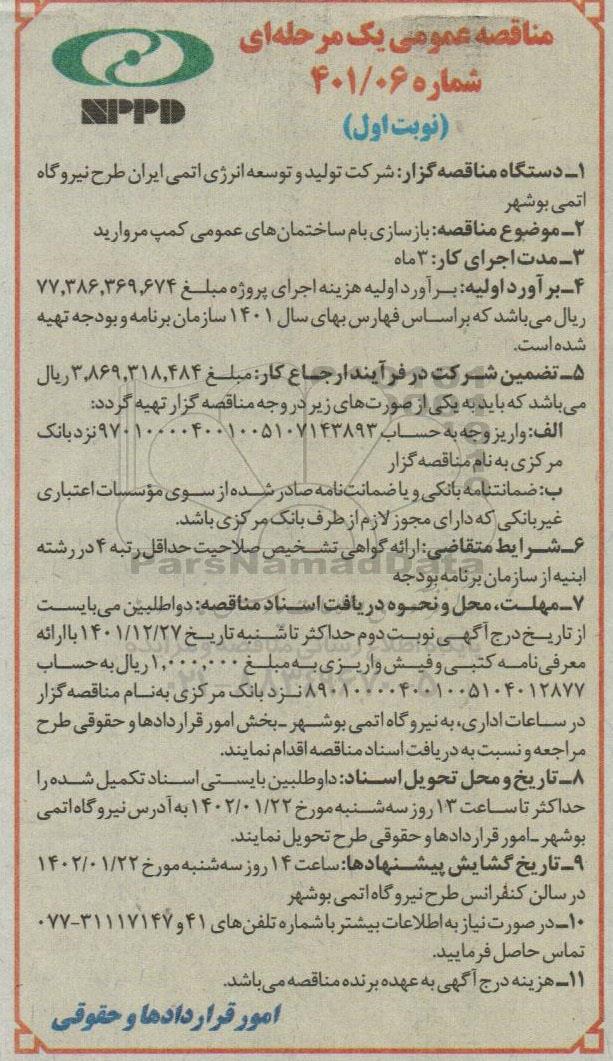 مناقصه عمومی یک مرحله‌ای
شماره ۴۰۱/۰۶
(نوبت اول)
NPPD
۱ـ دستگاه مناقصه گزار: شرکت تولید و توسعه انرژی اتمی ایران طرح نیروگاه
اتمی بوشهر
۲ـ موضوع مناقصه: بازسازی بام ساختمان‌های عمومی کمپ مروارید
۳ـ مدت اجرای کار: ۳ ماه
۴ـ برآورد اولیه: برآورد اولیه هزینه اجرای پروژه مبلغ ۷۷,۳۸۶,۳۶۹,۶۷۴
ریال می‌باشد که بر اساس فهارس بهای سال ۱۴۰۱ سازمان برنامه و بودجه تهیه
شده است.
۵ـ تضمین شرکت در فرآیند ارجاع کار: مبلغ ۳,۸۶۹,۳۱۸,۴۸۴ ریال
می‌باشد که باید به یکی از صورت‌های زیر در وجه مناقصه گزار تهیه گردد:
الف: واریز وجه به حساب ۹۷۰۱۰۰۰۰۴۰۰۱۰۰۵۱۰۷۱۴۳۸۹۳ نزد بانک
مرکزی به نام مناقصه گزار
ب: ضمانتنامه بانکی و یا ضمانت‌نامه صادر شده از سوی مؤسسات اعتباری
غیر بانکی که دارای مجوز لازم از طرف بانک مرکزی باشد.
۶ـ شرایط متقاضی: ارائه گواهی تشخیص صلاحیت حداقل رتبه ۴ در رشته
ابنیه از سازمان برنامه بودجه
ParsNamadData
۷ـ مهلت، محل و نحوه دریافت اسناد مناقصه: دواطلبین می‌بایست
از تاریخ درج آگهی نوبت دوم حداکثر تا شنبه تاریخ ۱۴۰۱/۱۲/۲۷ با ارائه
معرفی‌نامه کتبی و فیش واریزی به مبلغ ۱,۰۰۰,۰۰۰ ریال به حساب
۸۹۰۱۰۰۰۰۴۰۰۱۰۰۵۱۰۴۰۱۲۸۷۷ نزد بانک مرکزی به‌نام مناقصه گزار
در ساعات اداری، به نیروگاه اتمی بوشهر ـ بخش امور قراردادها و حقوقی طرح
مراجعه و نسبت به دریافت اسناد مناقصه اقدام نمایند.
۸ـ تاریخ و محل تحویل اسناد: داوطلبین بایستی اسناد تکمیل شده را
حداکثر تا ساعت ۱۳ روز سه‌شنبه مورخ ۱۴۰۲/۰۱/۲۲ به آدرس نیروگاه اتمی
بوشهر ـ امور قراردادها و حقوقی طرح تحویل نمایند.
۹ـ تاریخ گشایش پیشنهادها: ساعت ۱۴ روز سه‌شنبه مورخ ۱۴۰۲/۰۱/۲۲
در سالن کنفرانس طرح نیروگاه اتمی بوشهر
۱۰ـ در صورت نیاز به اطلاعات بیشتر با شماره تلفن‌های ۴۱ و ۳۱۱۱۷۱۴۷-۰۷۷
تماس حاصل فرمایید.
۱۱ـ هزینه درج آگهی به عهده برنده مناقصه می‌باشد.
امور قراردادها و حقوقی